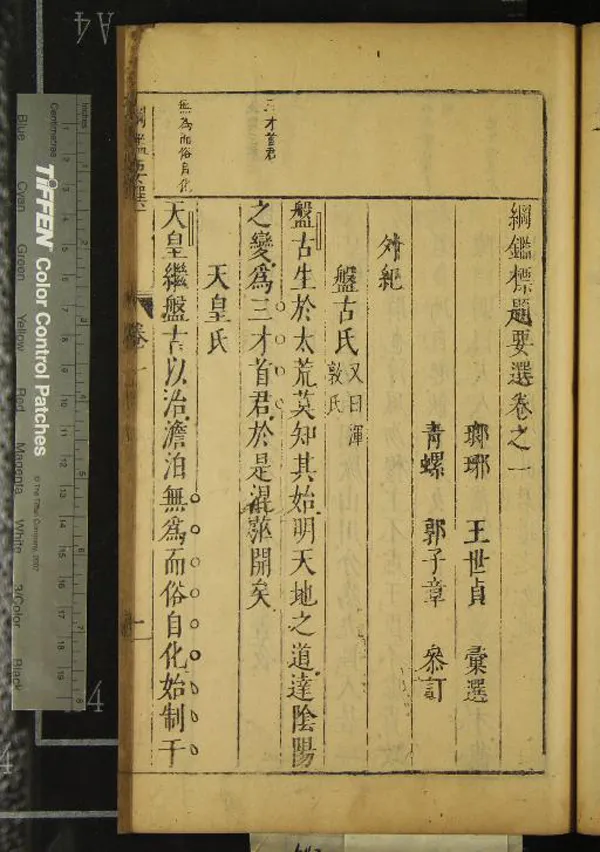 綱鑑標題要選卷之一
瑯琊 王世貞 彙選
青螺 郭子章 叅訂
外紀
盤古氏 又曰渾敦氏
盤古生於太荒莫知其始明天地之道達陰陽
之變爲三才首君於是混茫開矣
天皇氏
天皇繼盤古以治澹泊無爲而俗自化始制干
三才首君
無為而俗自化
綱鑑要選
卷一
一
Inches
Centimetres
TIFFEN Color Control Patches
© The Tiffen Company, 2007
Blue
Cyan
Green
Yellow
Red
Magenta
White
3/Color
Black
A4